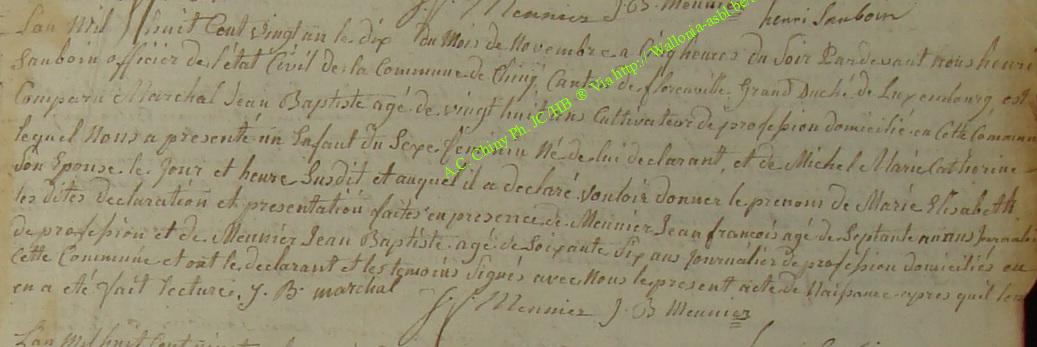 J. J. Meunier J. B. Meunier henri Sauboin
L'an Mil huit Cent vingt un le dix du Mois de Novembre a Cinq heures du Soir Pardevant nous henri
Sauboin officier de l'état Civil de la Commune de Chiny, Canton de florenville Grand Duché de Luxembourg est
Comparu Marchal Jean Baptiste agé de vingt huit ans Cultivateur de profession domicilié en Cette Commune
lequel Nous a presenté un Enfant du Sexe feminin Né de lui declarant, et de Michel Marie Catherine
Son Epouse le Jour et heure Susdit et auquel il a declaré vouloir donner le prenoms de Marie Elisabeth
les dites declaration et presentation faites en presence de Meunier Jean francois agé de Septante ans Journalier
de profession et de Meunier Jean Baptiste agé de Soixante Six ans Journalier de profession domiciliés en
Cette Commune et ont le declarant et les temoins Signés avec Nous le present acte de Naissance apres quil leur
en a été fait lecture, J. B. marchal
J. J. Meunier J. B Meunier
L'an Mil huit Cent vingt
A.C. Chiny Ph. JC/HB ® Via http://Wallonia-asbl.be